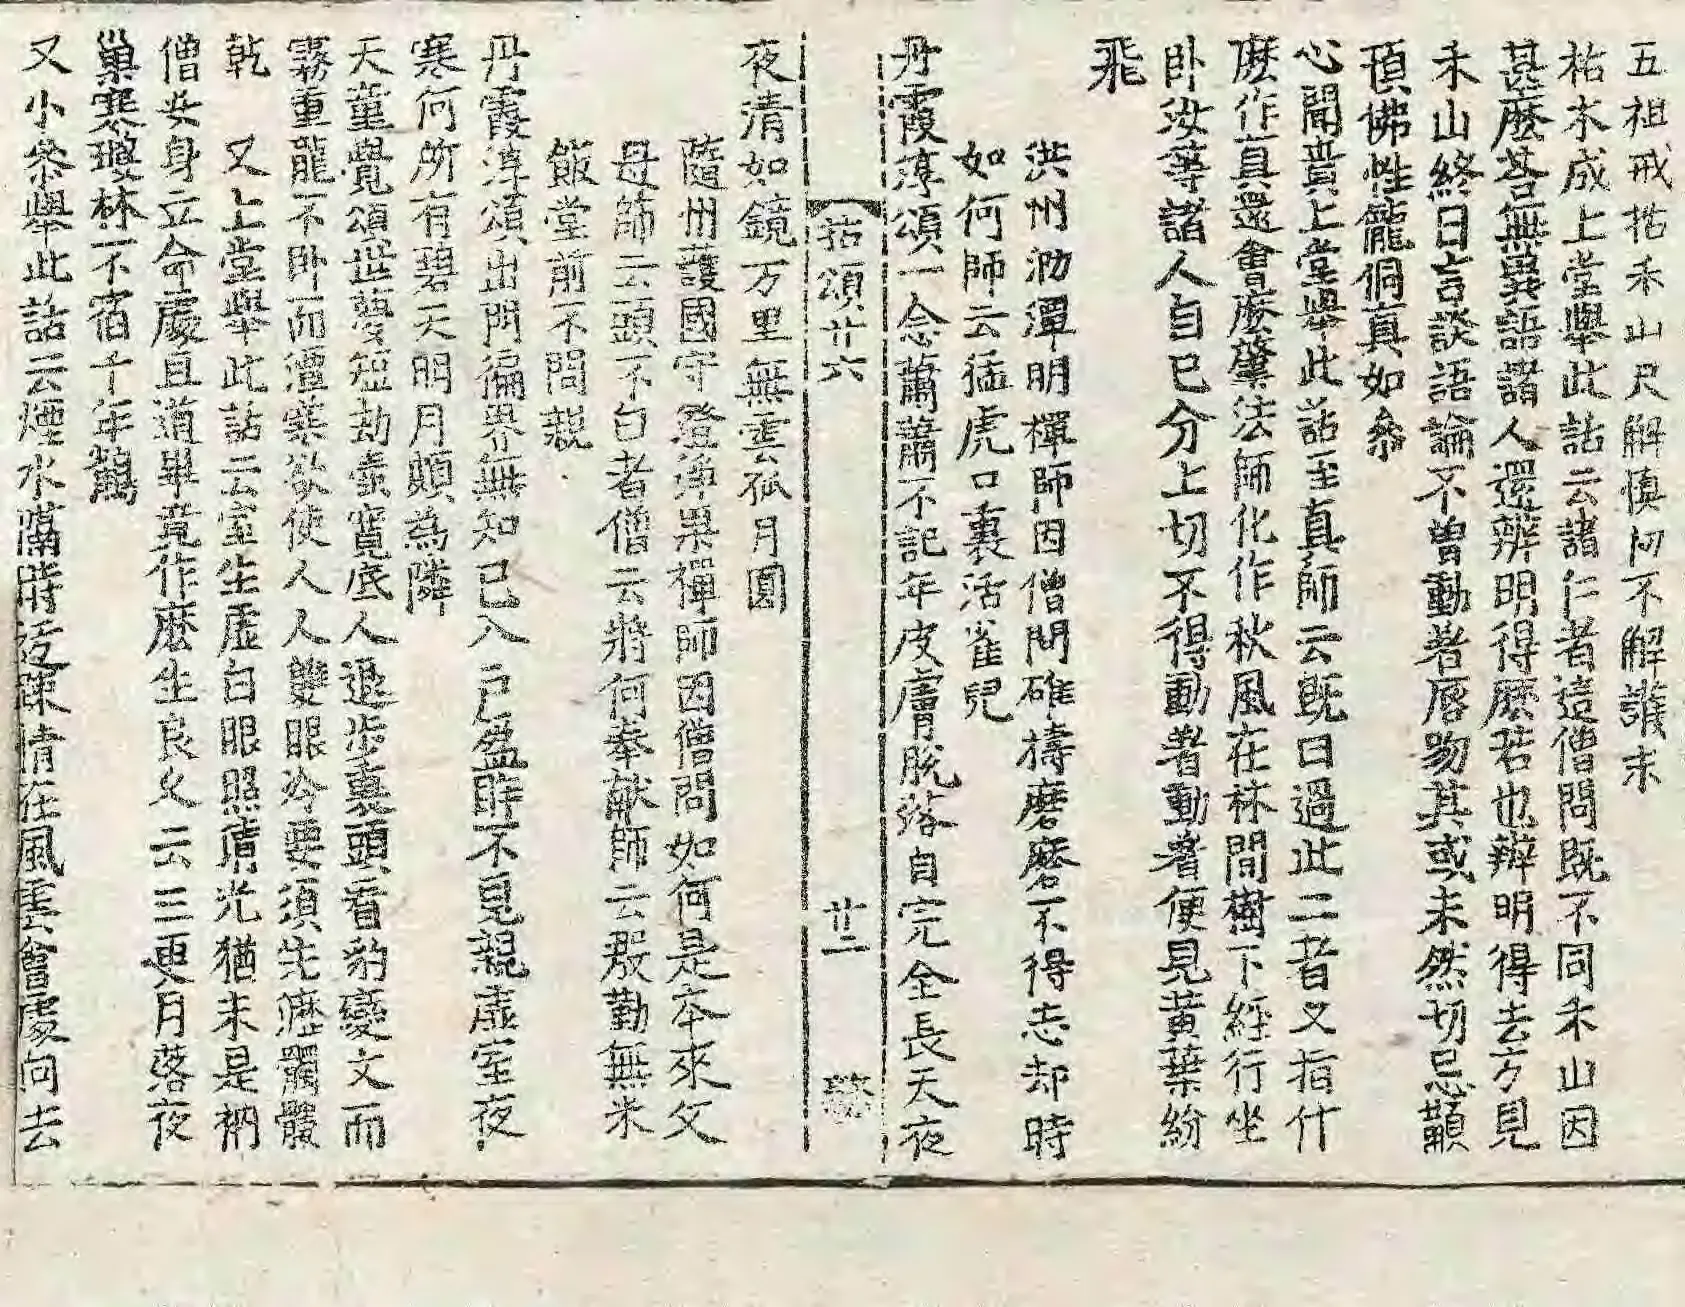 五祖戒拈禾山只解慎初不解護末
枯木成上堂舉此話云諸仁者這僧問既不同禾山因
甚麽荅無異語諸人還辨明得麽若也辨明得去方見
禾山終日言談語論不曾動著唇吻其或未然切忌顢
頇佛性儱侗真如叅
心聞賁上堂舉此話至真師云既曰過此二者又指什
麽作真還會麽肇法師化作秋風在林間樹下經行坐
卧汝等諸人自己分上切不得動著動著便見黄葉紛
飛
洪州泐潭明禪師因僧問碓擣磨磨不得忘却時
如何師云猛虎口裏活雀兒
丹霞淳頌一念蕭蕭不記年皮膚脫落自完全長天夜
拈頌廿六 廿二
夜清如鏡万里無雲孤月圓
隨州護國守澄淨果禪師因僧問如何是本來父
母師云頭不白者僧云將何奉献師云殷勤無米
飯堂前不問親
丹霞淳頌出門徧界無知已入户盈眸不見親虛室夜
寒何所有碧天明月頗為隣
天童覺頌世夢短劫壺寬底人退步裏頭看豹變文而
霧重龍不卧而澶寒欲使人人雙眼冷要須先瀝髑髏
乾 又上堂舉此話云室生虛白眼照清光猶未是衲
僧安身立命處且道畢竟作麽生良久云三更月落夜
巢寒璚林不宿千年鶴
又小叅舉此話云煙水隔時迂陳情在風雲會處向去